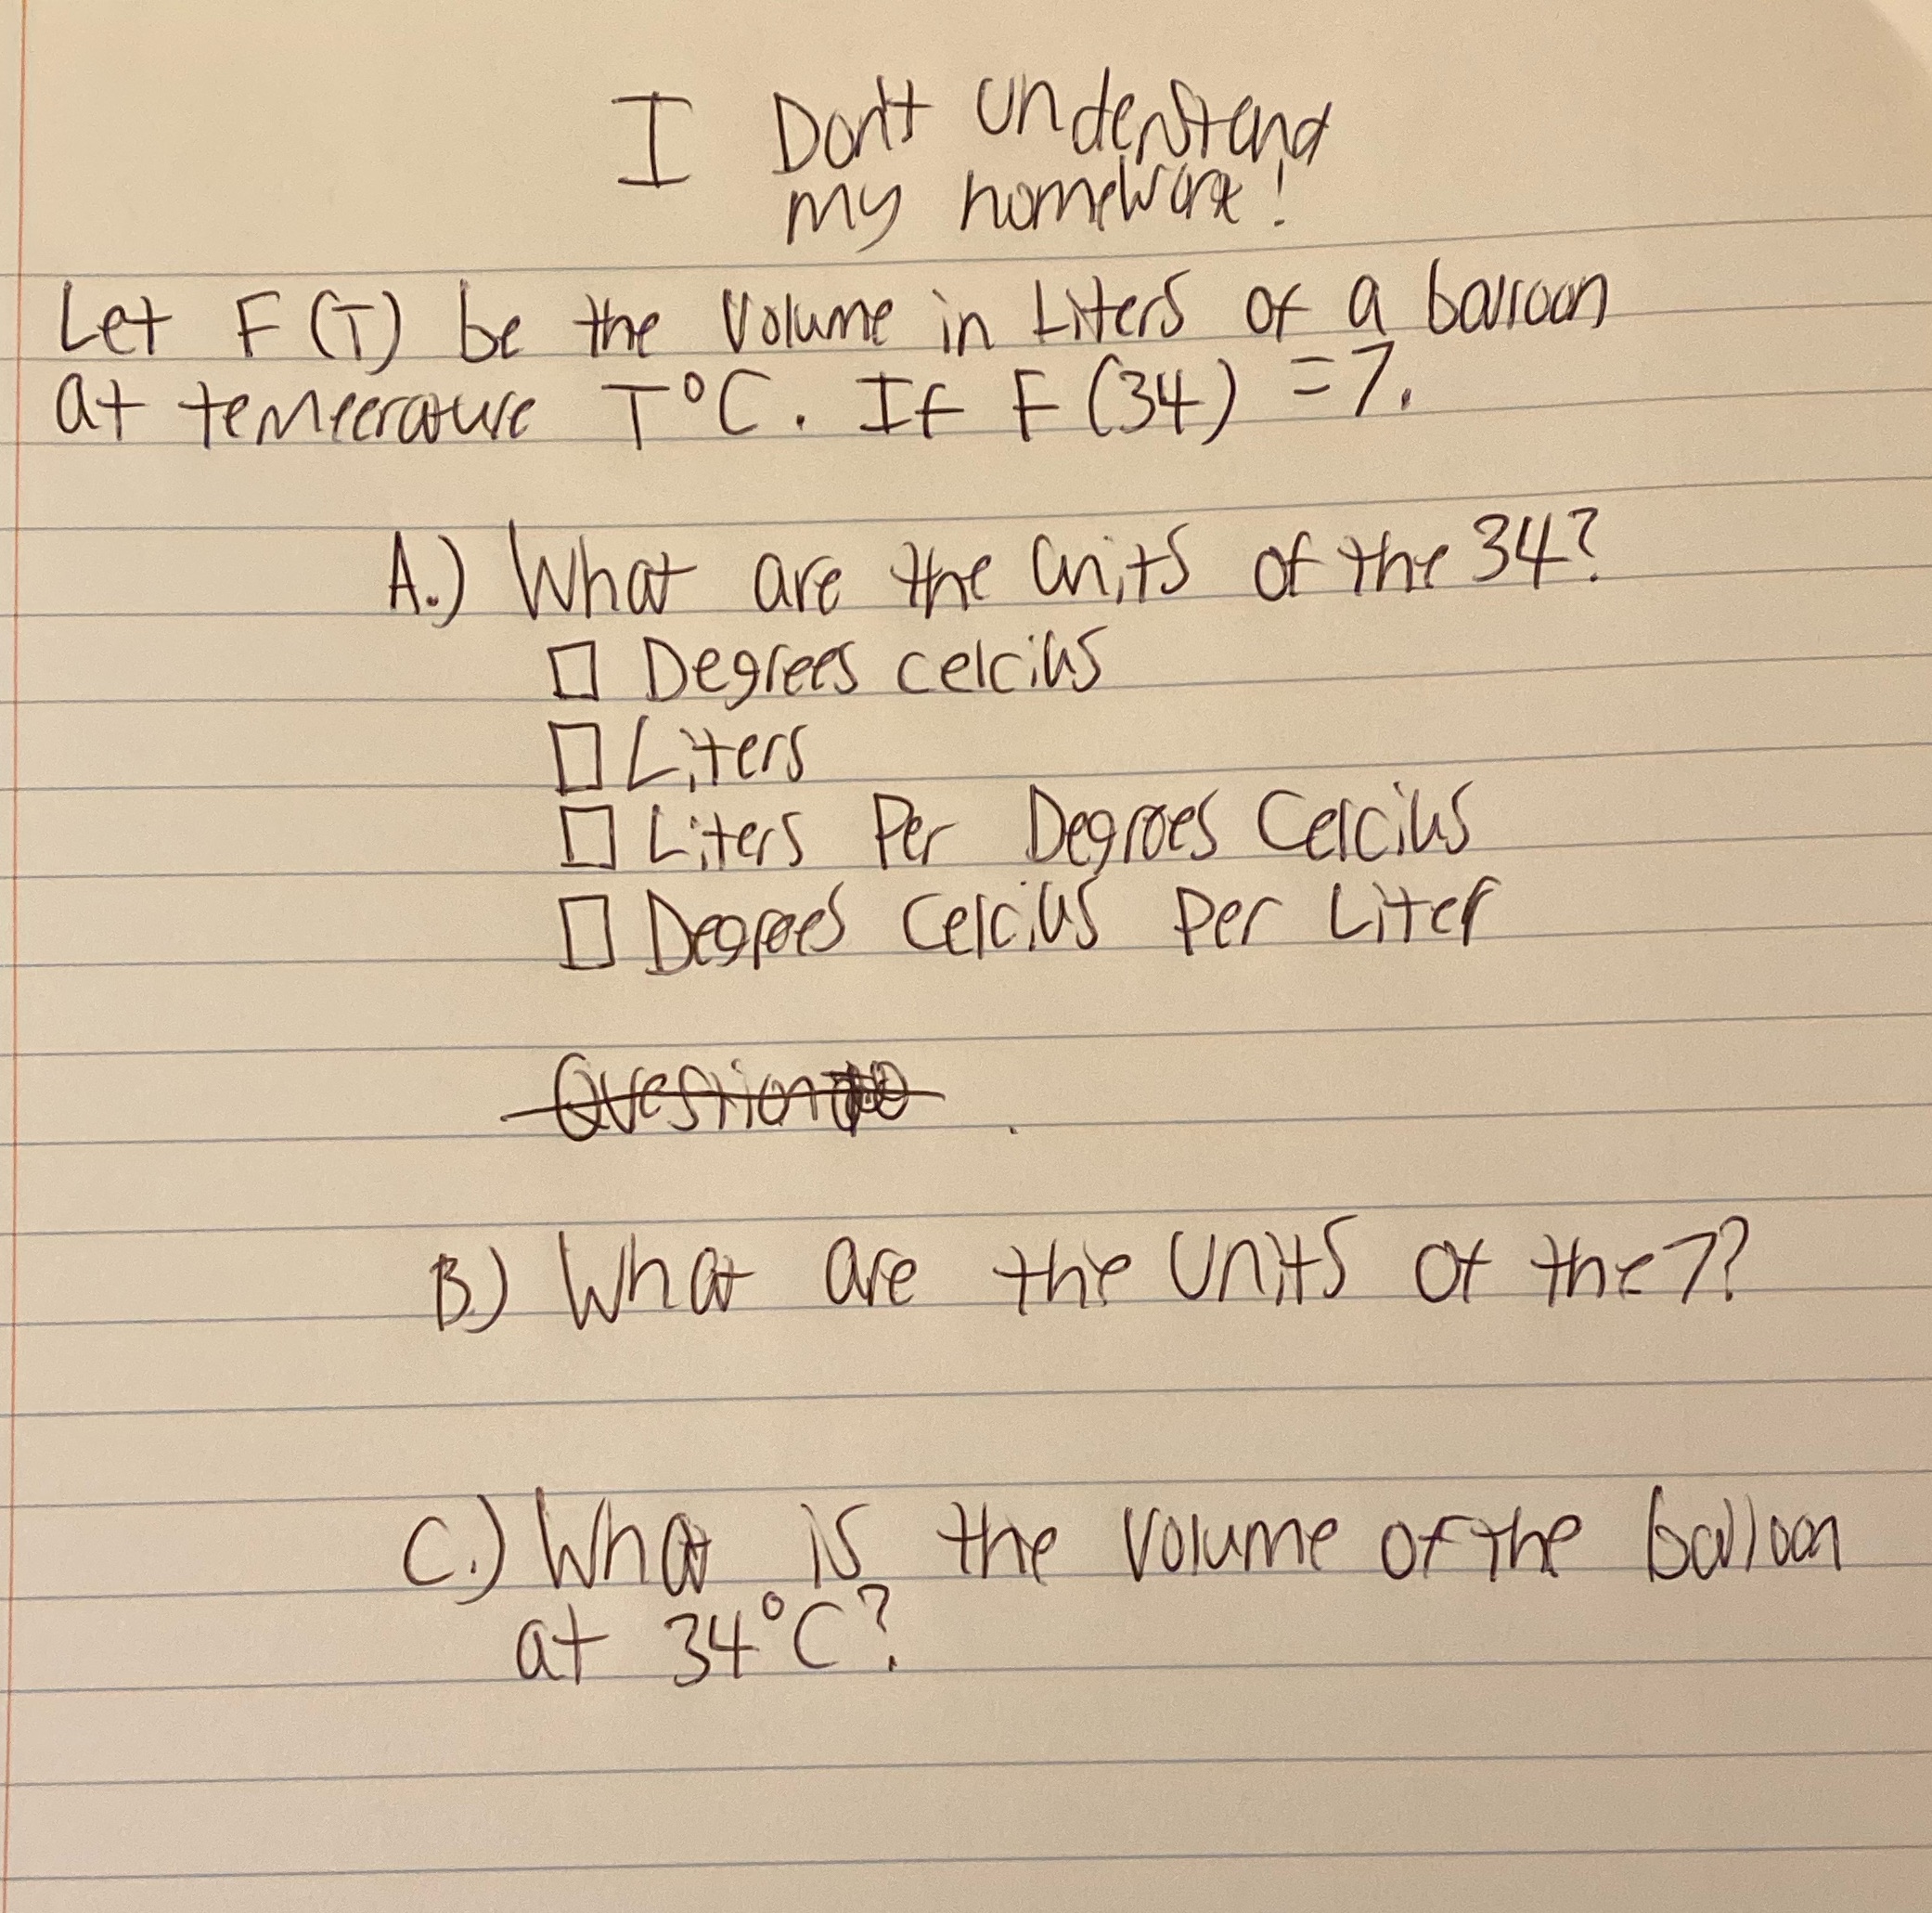 I Don't understand
my homework!
Let F(T) be the Volume in Liters of a balloon
at temperature T°C. If F(34) =7.
A.) What are the units of the 34?
Degrees celcius
Liters
Liters Per Degrees Celcius
Degrees Celcius Per Liter
Question
B) What are the units of the 7?
C.) What is the Volume of the balloon
at 34°C?